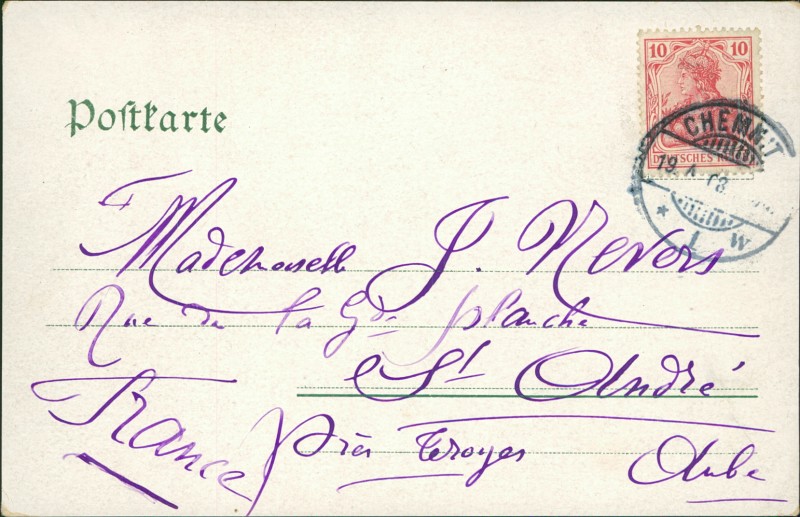 10 10
Postkarte
CHEMN
DEUTSCHES R
19
1 W
Mademoiselle J. Nevers
Rue de la Gde planche
St André
près Troyes
Aube
France